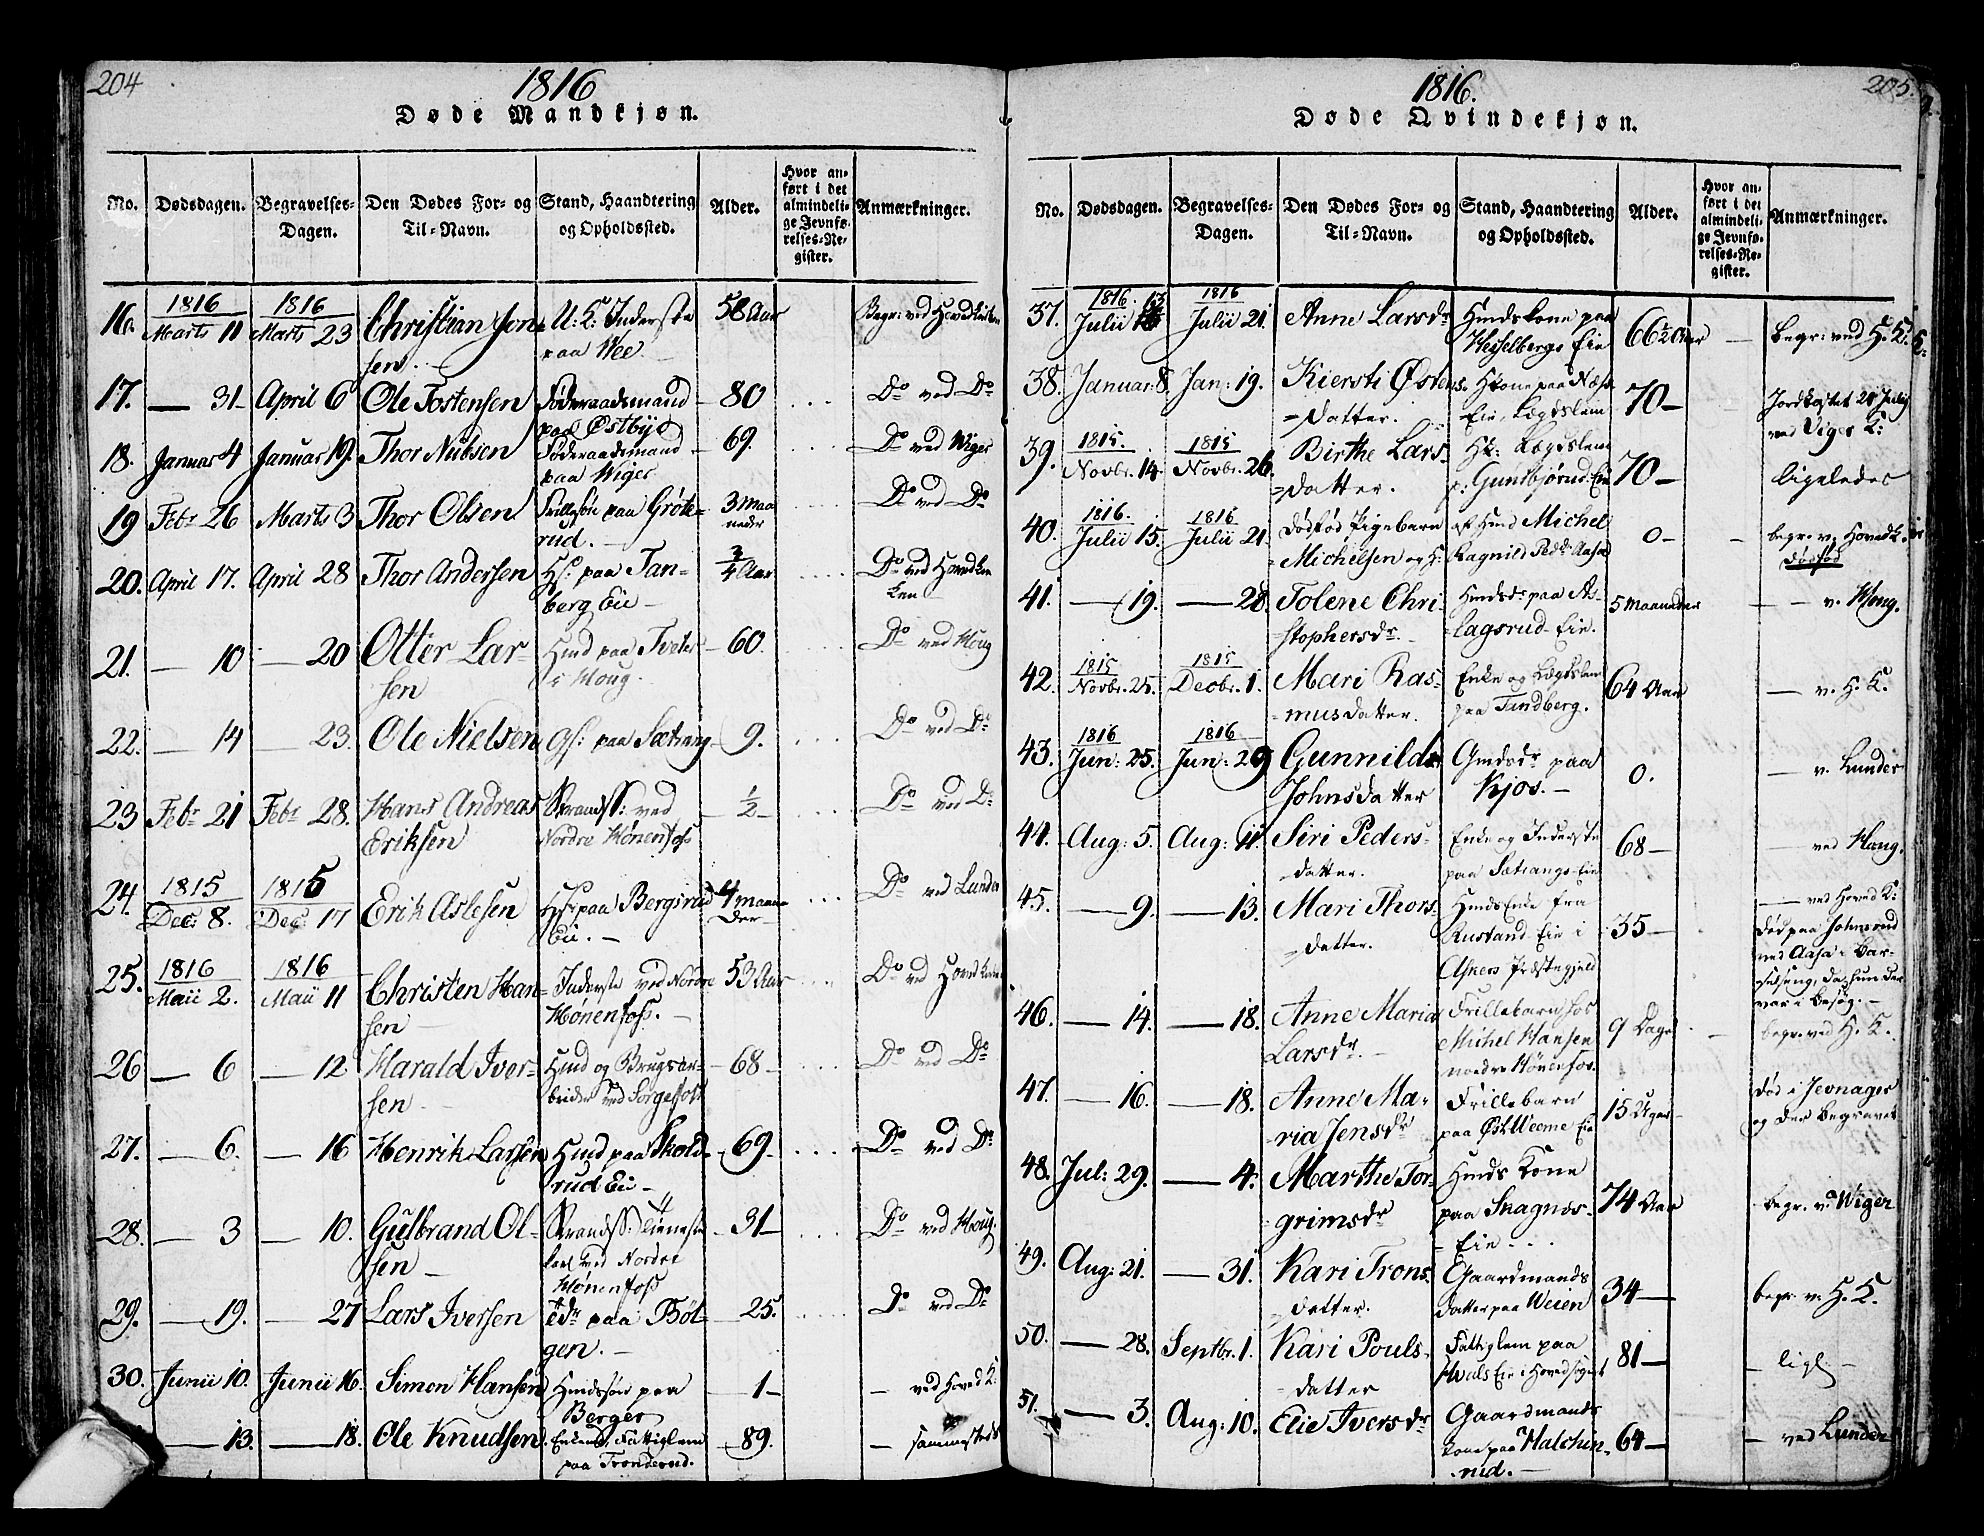 204
1816
Døde Mandkjøn.
No. Dødsdagen. Begravelses-Dagen. Den Dødes For- og Til-Navn. Stand, Haandtering og Opholdssted. Alder. Hvor anført i det almindelige Jevnførelses-Register. Anmærkninger.
16. 1816 Marts 11 1816 Marts 23 Christian Jonsen. U: L: Inderste paa Wee 58 Aar Begr: ved Hovedkirken
17. — 31 April 6 Ole Tostensen Føderaadsmand paa Østbye 80 Do ved Do
18. Januar 4 Januar 19. Thor Nubsen Føderaadsmand paa Wiger 69. Do ved Wiger
19 Febr 26 Marts 3 Thor Olsen Frillesøn paa Grøterud. 3 Maaneder Do ved Do
20. April 17. April 28 Thor Andersen Hs: paa Tanberg Eie 3/4 Aar Do ved Hovedkirken
21. — 10 — 20 Otter Larsen Hmd paa Tveter i Houg. 60. Do ved Houg
22. — 14 — 23. Ole Nielsen Gs: paa Sætrang 9. Do ved Do
23 Febr 21 Febr 28. Hans Andreas Eriksen Strandss: ved Nordre Hønenfoss 1/2 Do ved Do
24. 1815 Dec: 8. 1815 Dec 17 Erik Aslesen Hs: paa Bergsrud Eie. 4 Maaneder Do ved Lunder
25. 1816 Maii 2. 1816 Maii 11 Christen Hansen Inderste ved Nordre Hønenfoss. 53 Aar Do ved Hovedkirken
26 — 6 — 12 Harald Iversen Hmd og Brugsarbeider ved Sorgefoss 68 Do ved Do
27. — 6. — 16 Henrik Larsen Hmd paa Skoldrud Eie 69 Do ved Do
28. — 3 — 10. Gulbrand Olsen Strandss: tieneste karl ved Nordre Hønenfoss 31 Do ved Houg.
29. — 19. — 27 Lars Iversen paa Bølgen. 25. Do ved Do
30. Junii 10. Junii 16. Simon Hansen Hmdssøn paa Berger 1 — ved Hoved K:
— 13. — 18. Ole Knudsen Enkemd, Fattiglem paa Tronderud. 89. — sammesteds
205.
1816.
Døde Qvindekjøn.
No. Dødsdagen. Begravelses-Dagen. Den Dødes For- og Til-Navn. Stand, Haandtering og Opholdssted. Alder. Hvor anført i det almindelige Jevnførelses-Register. Anmærkninger.
37. 1816. Julii 13 1816 Julii 21. Anne Larsdr Hmdskone paa Hesselbergs Eie 66½ Aar begr: ved H. K.
38. Januar: 8. Jan: 19. Kiersti Østensdatter. Hkone paa Næss Eie, Lægdslem 70 Jordkastet 28 Julij ved Viger K:
39. 1815. Novbr. 14. 1815 Novbr. 26. Birthe Larsdatter. Hk: Lægdslem p: Gunbjørud Eie 70 ligeledes
40. 1816. Julii 15. 1816 Julii 21. Dødfød Pigebarn Michelsen af Hmd Michel Ragnild Pedr: Aasa 0 begr. v. Hovedk. dødfød
41. — 19. — 28. Tolene Christophersdr. Hmdsdr paa Aslagsrud Eie. 5 Maaneder — — v. Houg.
42. 1815 Novbr. 25. 1815 Decbr. 1. Mari Rasmusdatter. Enke og Lægdslem paa Tandberg. 64 Aar — v. H. K.
43. 1816 Jun: 25. 1816 Jun: 29 Gunnild Johnsdatter Gmdsdr paa Kjos. 0. — v. Lunder
44. Aug: 5. Aug: 11. Siri Pedersdatter. Enke og Inderste paa Sætrangs Eie 68 — ved Houg.
45. — 9. — 13. Mari Thorsdatter. Hmds Enke fra Rustand Eie i Askers Præstegjeld 35 — ved Hoved K: Død paa Johnsrud ved Aasa i Barselseng, da hun der var i Besøg.
46. — 14. — 18. Anne Maria Larsdr. Frillebarn hos Michel Hansen nordre Hønenfos. 9 Dage begr. ved H. K.
47. — 16. — 18. Anne Maria Jensdr Frillebarn paa Øst Weeme Eie 15 Uger Død i Jevnager og der begravet
48. Jul: 29. — 4. Marthe Torgrimsdr Hmds Kone paa Skagnæs Eie 74 Aar begr. ved Wiger
49. Aug: 21. — 31. Kari Tronsdatter. Gaardmands datter paa Weien 34 begr. v. H. K.
50. — 28. Septbr. 1. Kari Poulsdatter Fattiglem paa Hvals Eie i Hovedsognet 81 — ligl.
51. — 3. Aug: 10. Elie Iversdr Gaardmands kone paa Halchinrud. 64 — ved Lunder